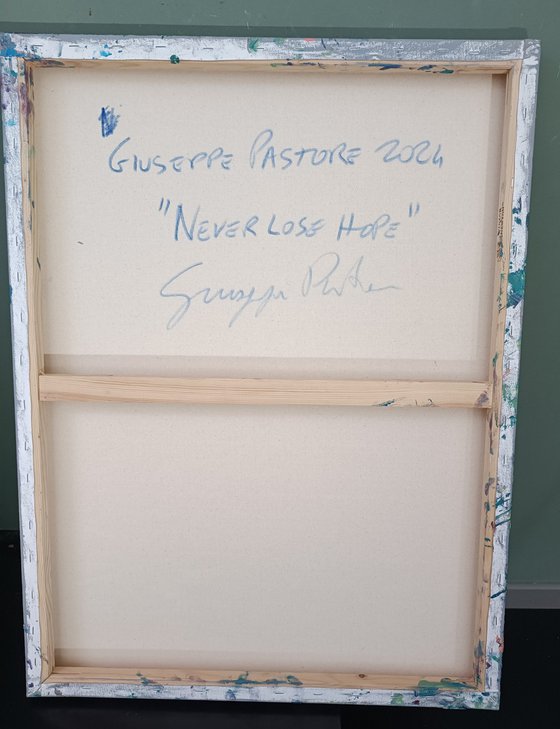 GIUSEPPE PASTORE 2024
"NEVER LOSE HOPE"
Giuseppe Pastore